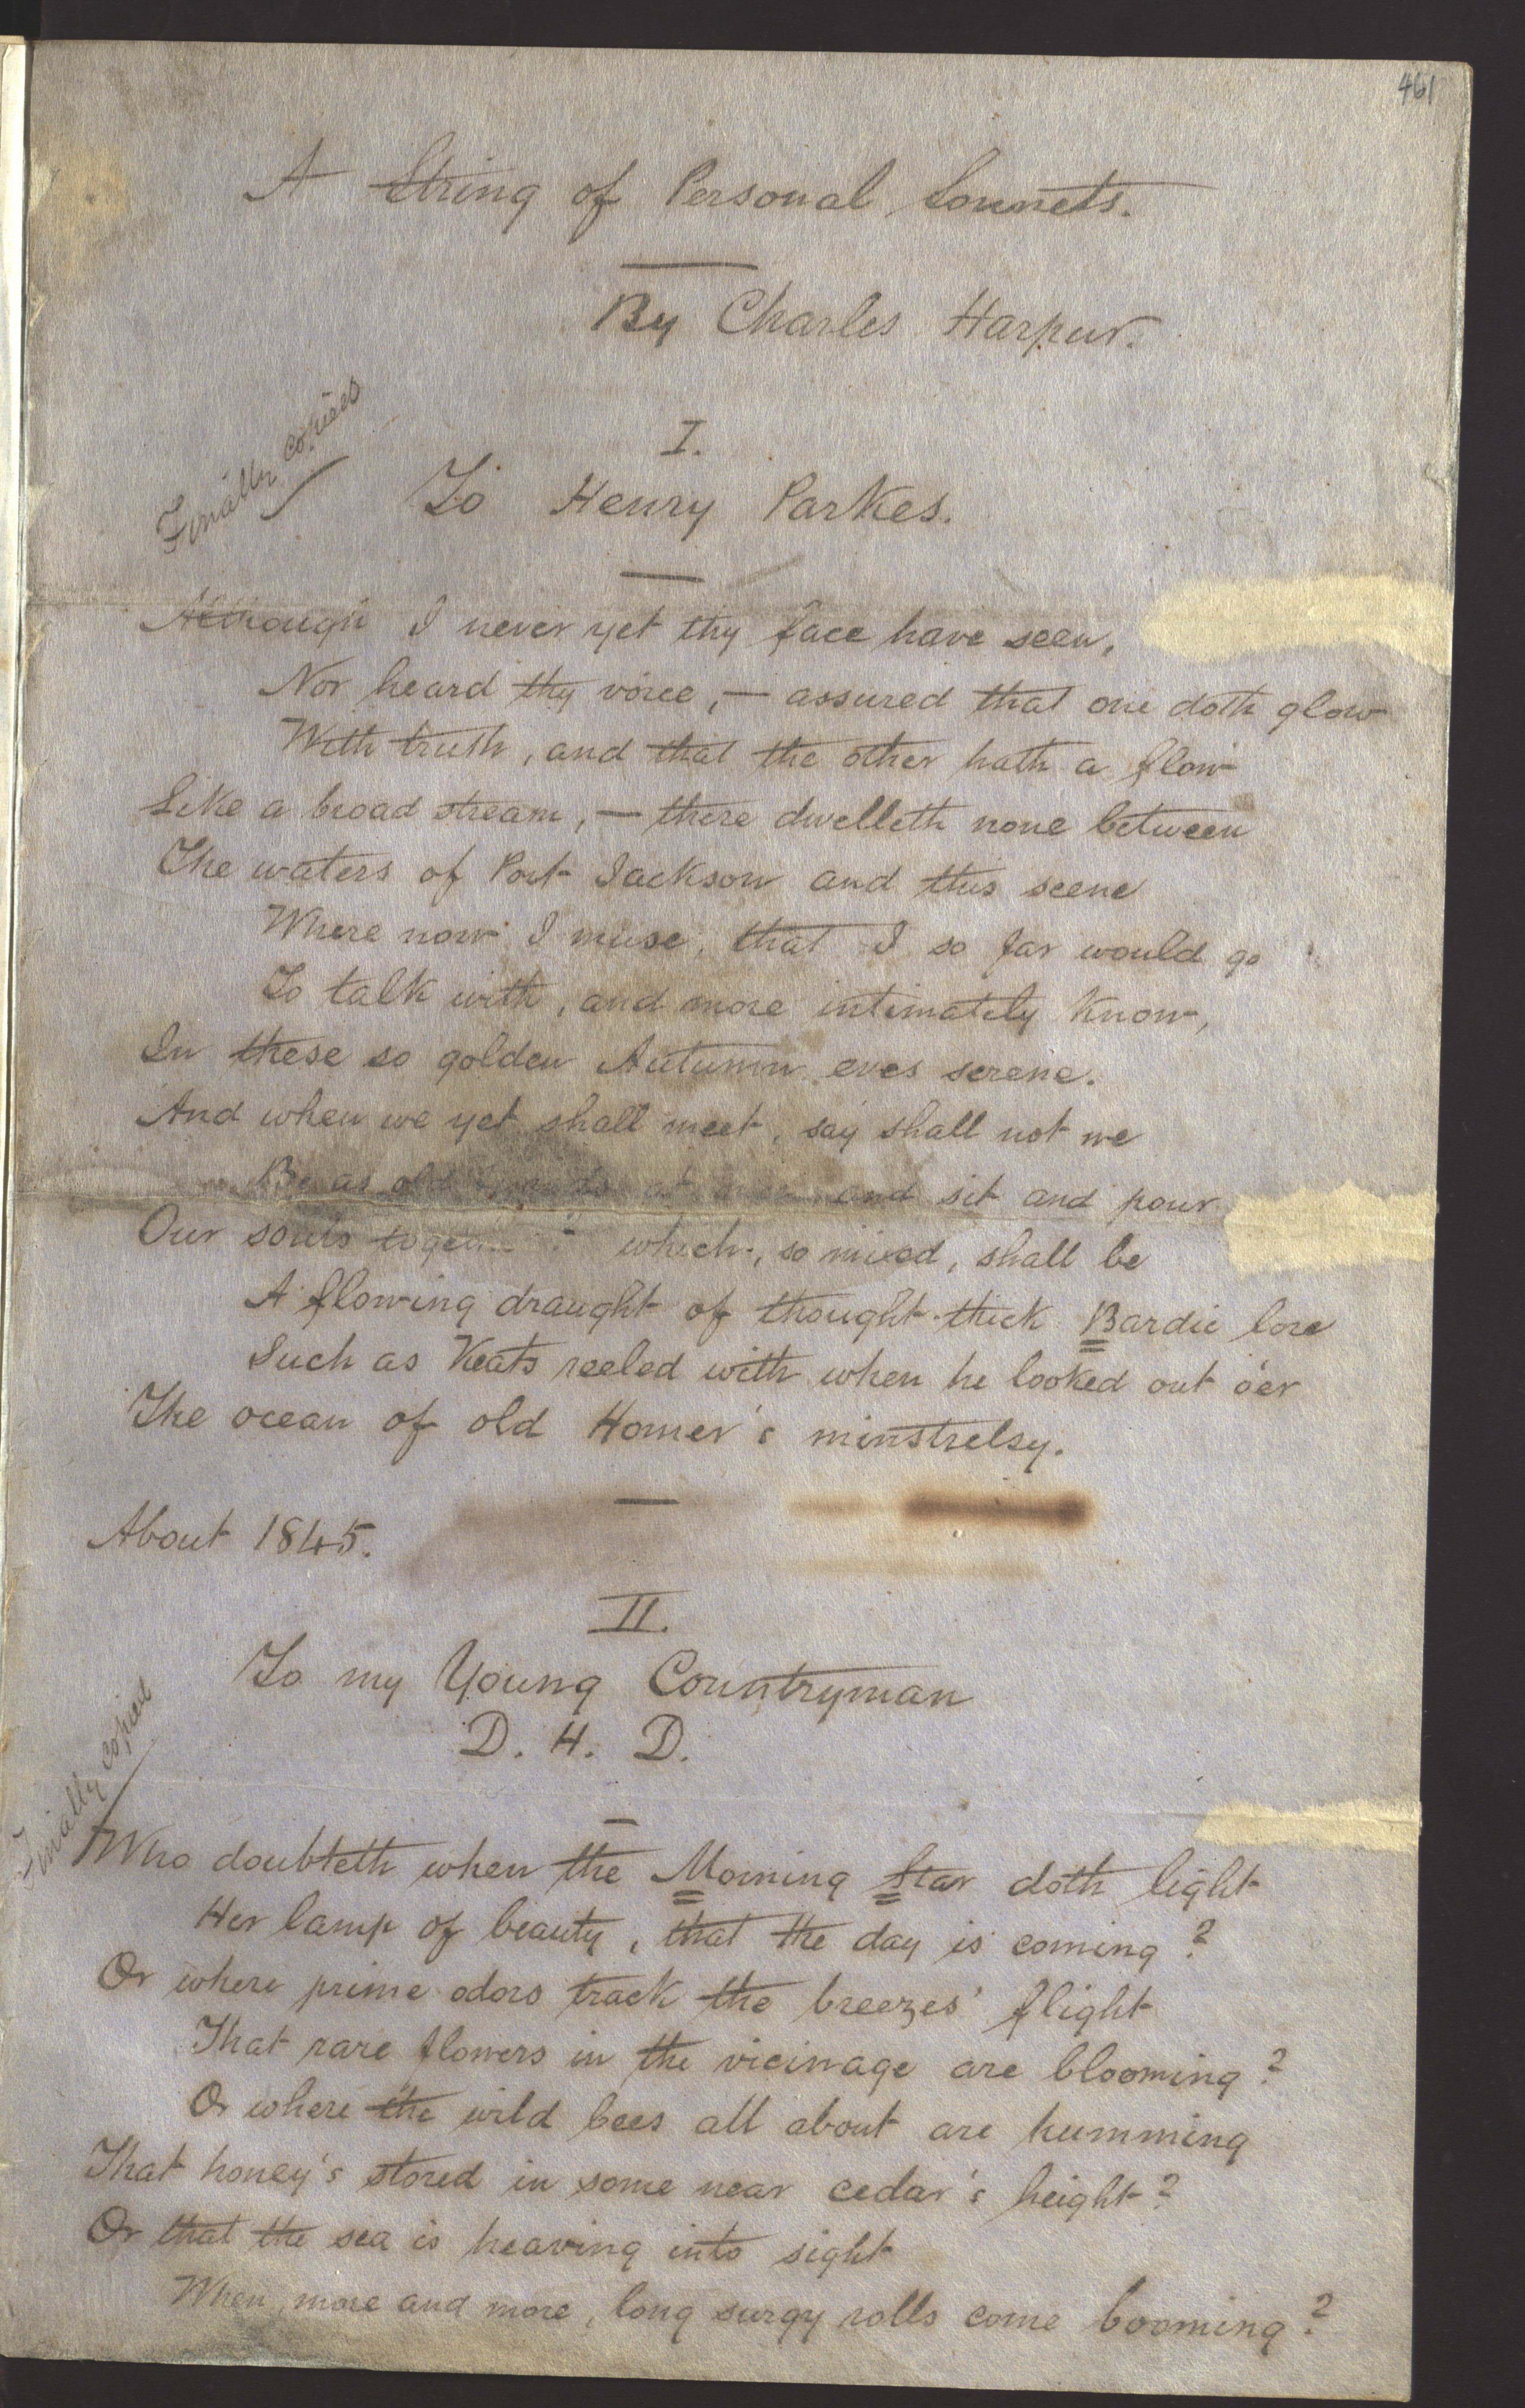 461
A String of Personal Sonnets.
By Charles Harpur.
Finally copied
I.
To Henry Parkes.
Although I never yet thy face have seen,
Nor heard thy voice, — assured that one doth glow
With truth, and that the other hath a flow
Like a broad stream, — there dwelleth none between
The waters of Port Jackson and this scene
Where now I muse, that I so far would go
To talk with, and more intimately know,
In these so golden Autumn eves serene.
And when we yet shall meet, say shall not we
Be as old friends at and sit and pour
Our souls together? which, so mixed, shall be
A flowing draught of thought-thick Bardic lore
Such as Keats reeled with when he looked out o'er
The ocean of old Homer's minstrelsy.
About 1845.
II.
To my Young Countryman
D. H. D.
Finally copied
Who doubteth when the Morning Star doth light
Her lamp of beauty, that the day is coming?
Or where prime odors track the breezes' flight
That rare flowers in the vicinage are blooming?
Or where the wild bees all about are humming
That honey's stored in some near cedar's height?
Or that the sea is heaving into sight
When, more and more, long surgy rolls come booming?